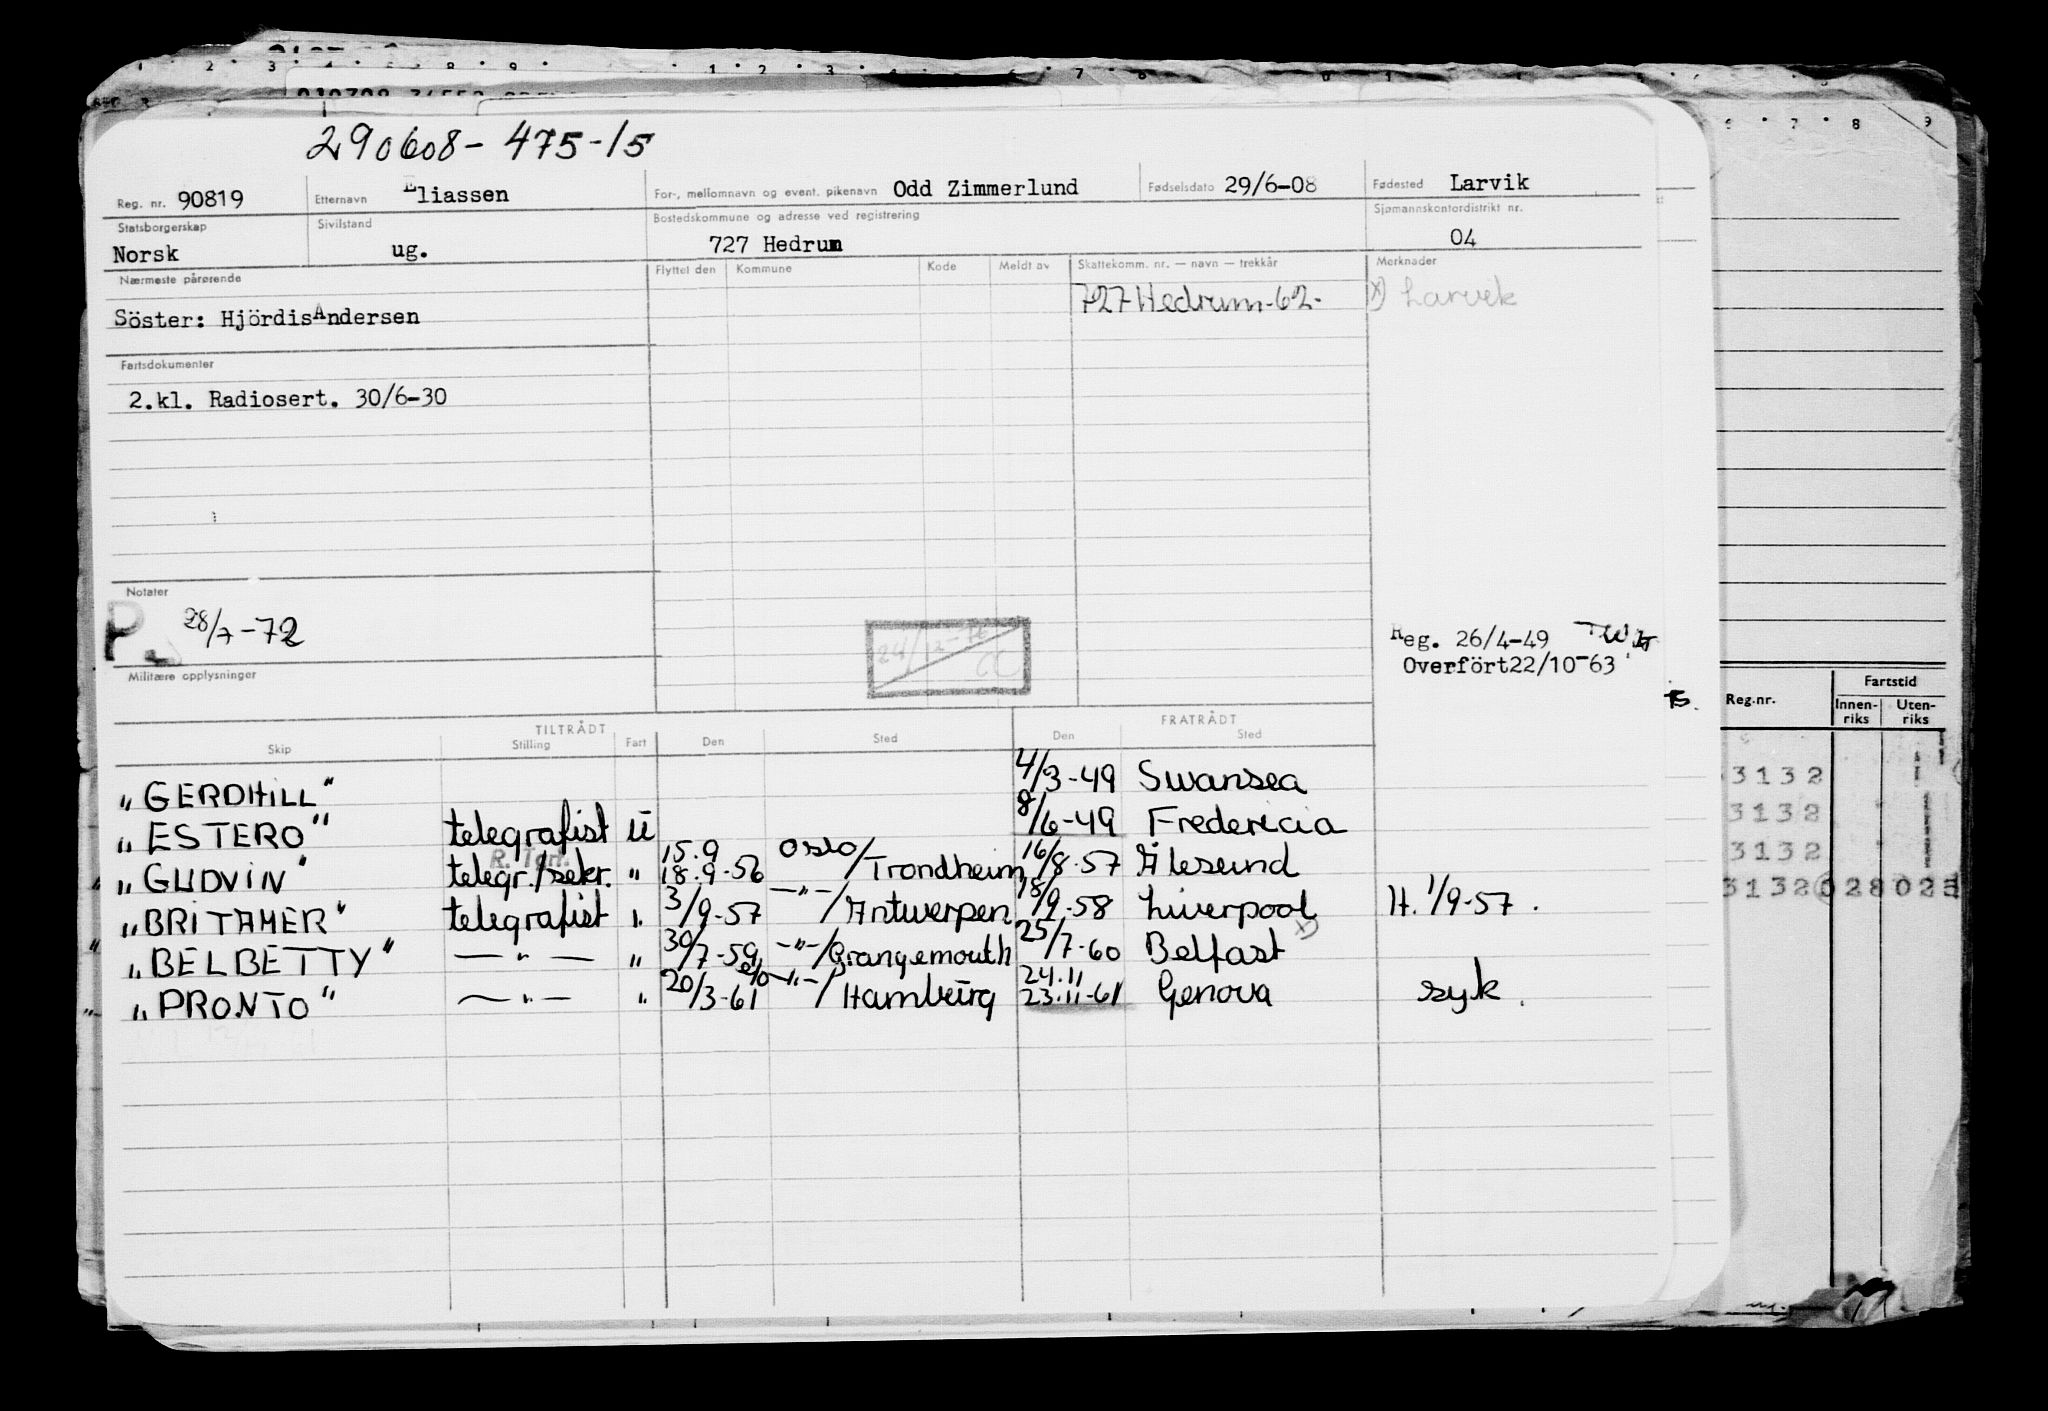 290608-475-15
Reg. nr. 90819 Etternavn Eliassen For-, mellomnavn og event. pikenavn Odd Zimmerlund Fødselsdato 29/6-08 Fødested Larvik
Statsborgerskap Sivilstand Bostedskommune og adresse ved registrering Sjømannskontordistrikt nr.
Norsk ug. 727 Hedrum 04
Nærmeste pårørende Flyttet den Kommune Kode Meldt av Skattekomm. nr. — navn — trekkår Merknader
727 Hedrum-62- x) Larvik
Søster: Hjördis Andersen
Fartsdokumenter
2.kl. Radiosert. 30/6-30
Notater
P. 28/7-72
Reg. 26/4-49
Overfört 22/10-63
Militære opplysninger
TILTRÅDT FRATRÅDT
Skip Stilling Fart Den Sted Den Sted
"GERDHILL" 4/3-49 Swansea
"ESTERO" telegrafist U 8/6-49 Fredericia
"GUDVIN" telegr./sekr. " 15.9 18.9-56 Oslo/Trondheim 16/8-57 Ålesund
"BRITAMER" telegrafist " 3/9-57 -"-/Antwerpen 18/9-58 Liverpool H. 1/9-57.
"BELBETTY" -"- " 30/7-59 -"-/Grangemouth 25/7-60 Belfast x)
"PRONTO" -"- " 20/3-61 -"-/Hamburg 24.11 23.11-61 Genova syk.
Reg.nr. Fartstid
Innen-riks Uten-riks
3132
3132
3132
3132